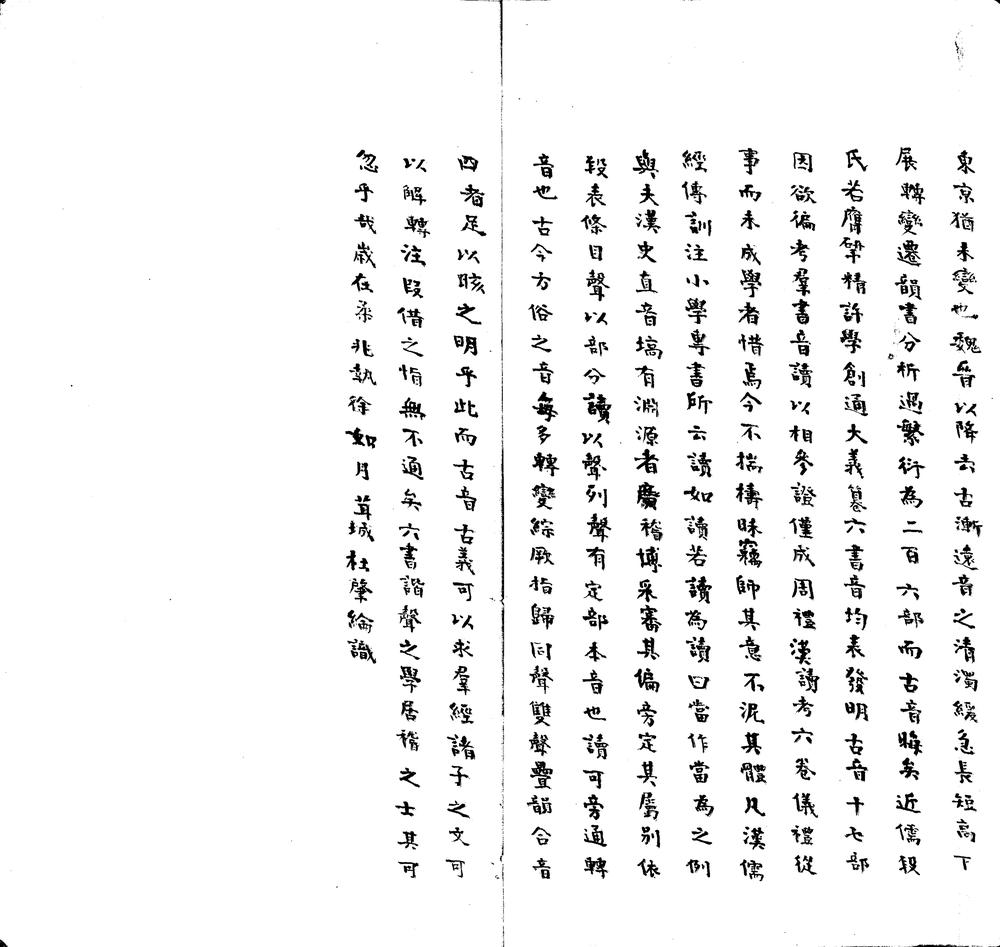 東京猶未變也魏晉以降去古漸遠音之清濁緩急長短高下
展轉變遷韻書分析過繁衍為二百六部而古音晦矣近儒段
氏若膺揅精許學創通大義纂六書音均表發明古音十七部
因欲徧考羣書音讀以相參證僅成周禮漢讀考六卷儀禮從
事而未成學者惜焉今不揣檮昧竊師其意不泥其體凡漢儒
經傳訓注小學專書所云讀如讀若讀為讀曰當作當為之例
與夫漢史直音塙有淵源者慶稽博采審其偏旁定其屬別依
段表條目聲以部分讀以聲列聲有定部本音也讀可旁通轉
音也古今方俗之音每多轉變綜厥指歸同聲雙聲疊韻合音
四者足以晐之明乎此而古音古義可以求羣經諸子之文可
以解轉注叚借之恉無不通矣六書諧聲之學居稽之士其可
忽乎哉歲在柔兆執徐如月葺城杜肇綸識